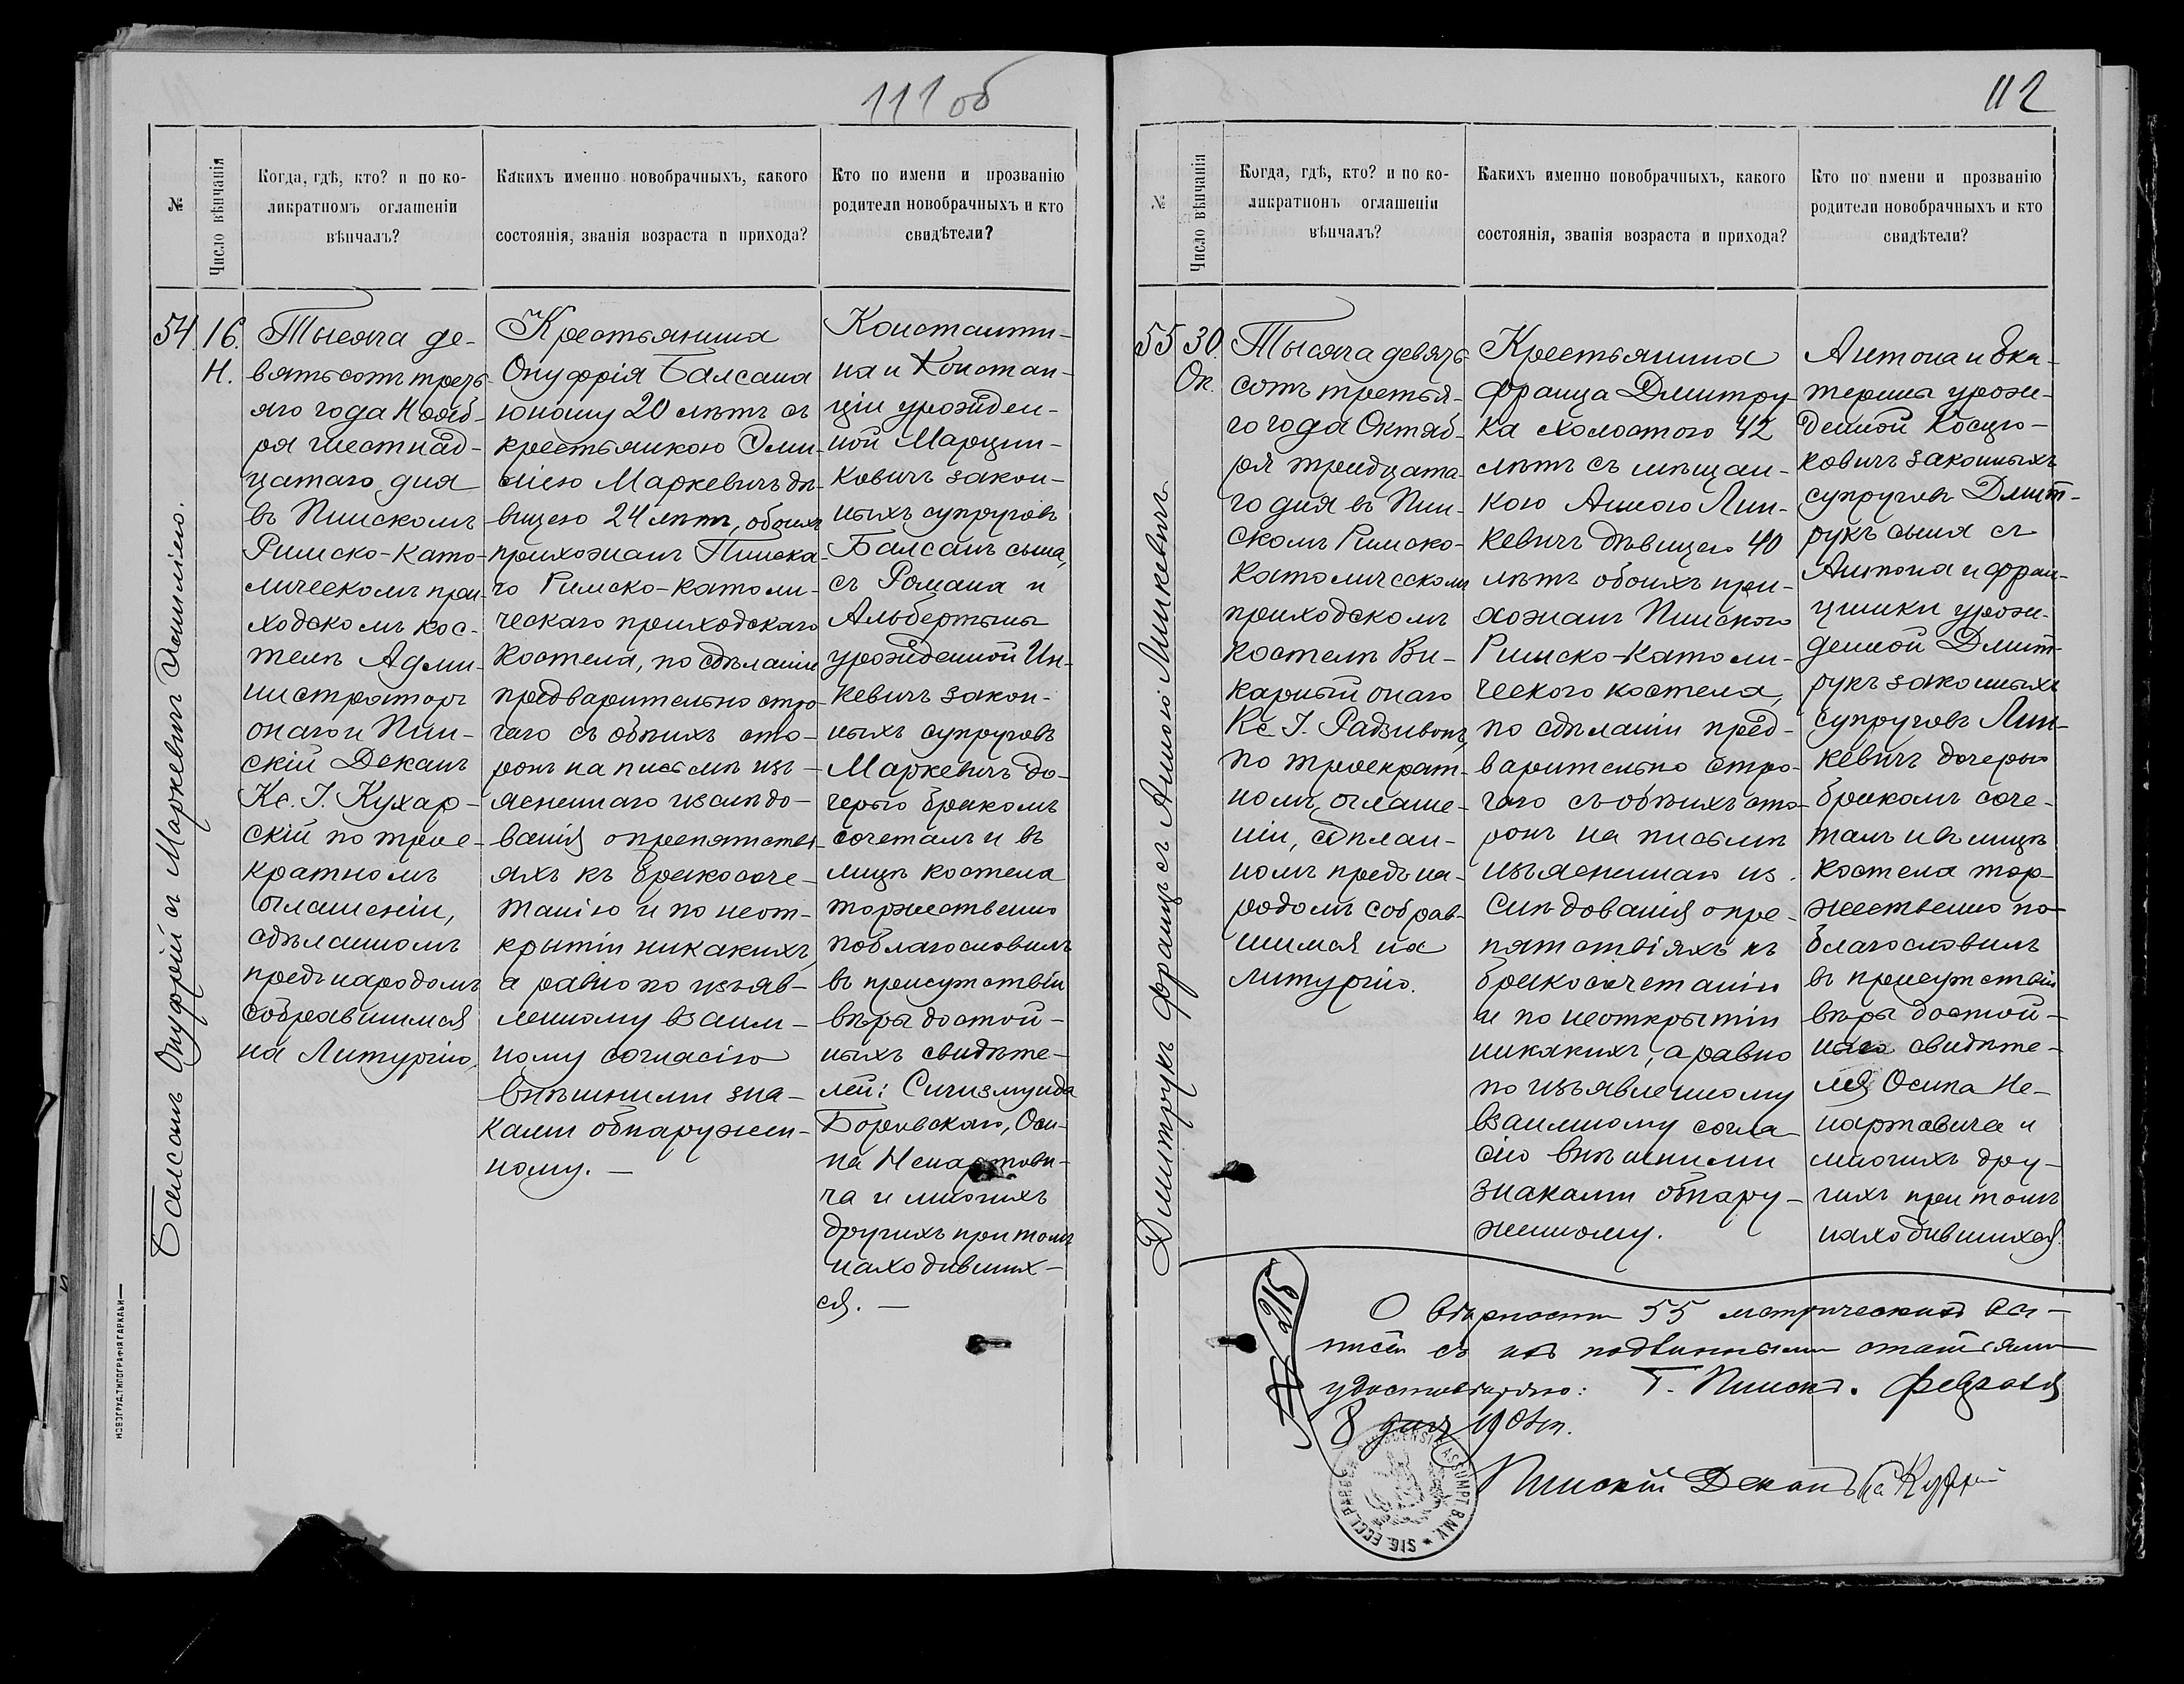 111 об
№
Число вѣнчанія
Когда, гдѣ, кто? и по ко-
ликратномъ оглашеніи
вѣнчалъ?
Какихъ именно новобрачныхъ, какого
состоянія, званія возраста и прихода?
Кто по имени и прозванію
родители новобрачныхъ и кто
свидѣтели?
54.
16.
Н.
Балсанъ Онуфрій съ Маркевичъ Эмиліею.
Тысяча де-
вятьсотъ треть-
яго года Нояб-
ря шестнад-
цатаго дня
въ Пинскомъ
Римско-като-
лическомъ при-
ходскомъ кос-
телѣ Адми-
нистраторъ
онаго и Пин-
скій Деканъ
Кс. І. Кухар-
скій по трое-
кратномъ
оглашеніи,
сдѣланномъ
предъ народомъ
собравшимся
на Литургію,
Крестьянина
Онуфрія Балсана
юношу 20 лѣтъ съ
крестьянкою Эми-
ліею Маркевичъ дѣ-
вицею 24 лѣтъ, обоихъ
прихожанъ Пинска-
го Римско-католи-
ческаго приходскаго
костела, по сдѣланіи
предварительно стро-
гаго съ обѣихъ сто-
ронъ на письмѣ изъ-
ясненнаго изслѣдо-
ванія о препятстві-
яхъ къ бракосоче-
танію и по неот-
крытіи никакихъ,
а равно по изъяв-
ленному взаим-
ному согласію
внѣшними зна-
ками обнаружен-
ному. —
Константи-
на и Констан-
ціи урожден-
ной Марцин-
кевичъ закон-
ныхъ супруговъ
Балсанъ сына,
съ Романа и
Альбертыны
урожденной Ин-
кевичъ закон-
ныхъ супруговъ
Маркевичъ до-
черью бракомъ
сочеталъ и въ
лицѣ костела
торжественно
поблагословилъ
въ присутствіи
вѣры достой-
ныхъ свидѣте-
лей: Сигизмунда
Боровскаго, Оси-
па Ненартови-
ча и многихъ
другихъ при томъ
находивших-
ся. —
НОВОГРУД. ТИПОГРАФІЯ ГАРКАВИ
112
№
Число вѣнчанія
Когда, гдѣ, кто? и по ко-
ликратномъ оглашеніи
вѣнчалъ?
Какихъ именно новобрачныхъ, какого
состоянія, званія возраста и прихода?
Кто по имени и прозванію
родители новобрачныхъ и кто
свидѣтели?
55
30.
Ок.
Дмитрукъ Францъ съ Анною Линкевичъ
Тысяча девять-
сотъ третья-
го года Октяб-
ря тридцата-
го дня въ Пин-
скомъ Римско-
католическомъ
приходскомъ
костелѣ Ви-
карный онаго
Кс. І. Радзивонъ,
по троекрат-
номъ оглаше-
ніи, сдѣлан-
номъ предъ на-
родомъ собрав-
шимся на
литургію.
Крестьянина
Франца Дмитру-
ка холостого 42
лѣтъ съ мѣщан-
кою Анною Лин-
кевичъ дѣвицею 40
лѣтъ обоихъ при-
хожанъ Пинского
Римско-католи-
ческого костела,
по сдѣланіи пред-
варительно стро-
гаго съ обѣихъ сто-
ронъ на письмѣ
изъясненнаго из-
слѣдованія о пре-
пятствіяхъ къ
бракосочетанію
и по неоткрытіи
никакихъ, а равно
по изъявленному
взаимному согла-
сію внѣшними
знаками обнару-
женному.
Антона и Ека-
терины урож-
денной Косцю-
кевичъ законныхъ
супруговъ Дмит-
рукъ сына съ
Антона и Фран-
цишки урож-
денной Дмит-
рукъ законныхъ
супруговъ Лин-
кевичъ дочерью
бракомъ соче-
талъ и въ лицѣ
костела тор-
жественно по-
благословилъ
въ присутствіи
вѣры достой-
наго свидѣте-
ля Осипа Не-
нартовича и
многихъ дру-
гихъ при томъ
находившихся.
О вѣрности 55 метрическихъ за-
писей съ ихъ подлинными статьями
удостовѣряю: Г. Пинскъ. Февраля
8 дня 1904 г.
Пинскій Деканъ Кс
SIG. ECCL. PAROCH. PINSCENSIS ASSUMPT. B.M.V.